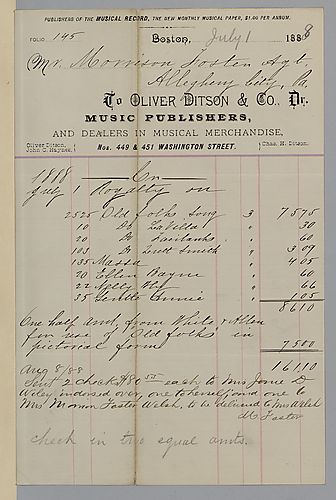 PUBLISHERS OF THE MUSICAL RECORD, THE NEW MONTHLY MUSICAL PAPER, $1.00 PER ANNUM.
FOLIO 145
Boston, July 1 1888
Mr. Morrison Foster Agt.
Allegheny City, Pa.
To OLIVER DITSON & CO., Dr.
MUSIC PUBLISHERS,
AND DEALERS IN MUSICAL MERCHANDISE,
Oliver Ditson,
John C. Haynes.
Nos. 449 & 451 WASHINGTON STREET.
Chas. H. Ditson.
1888 Cr
July 1 Royalty on
2525 Old folks song 3 75 75
10 Do " 30
20 Do " 60
103 Do Smith " 3 09
135 Massa " 4 05
20 Ellen Bayne " 60
22 Nelly Bly " 66
35 Gentle Annie " 1 05
86 10
One half amt, from White & Allen
for use of "Old folks" in
pictorial form 75 00
161 10
Aug 8/88
Sent 2 checks $80 55 each to Mrs Jane D
Wiley indorsed over, one to herself and one to
Mrs Marion Foster Welsh, to be delivered to Mrs Welsh
M Foster
check in two equal amts.